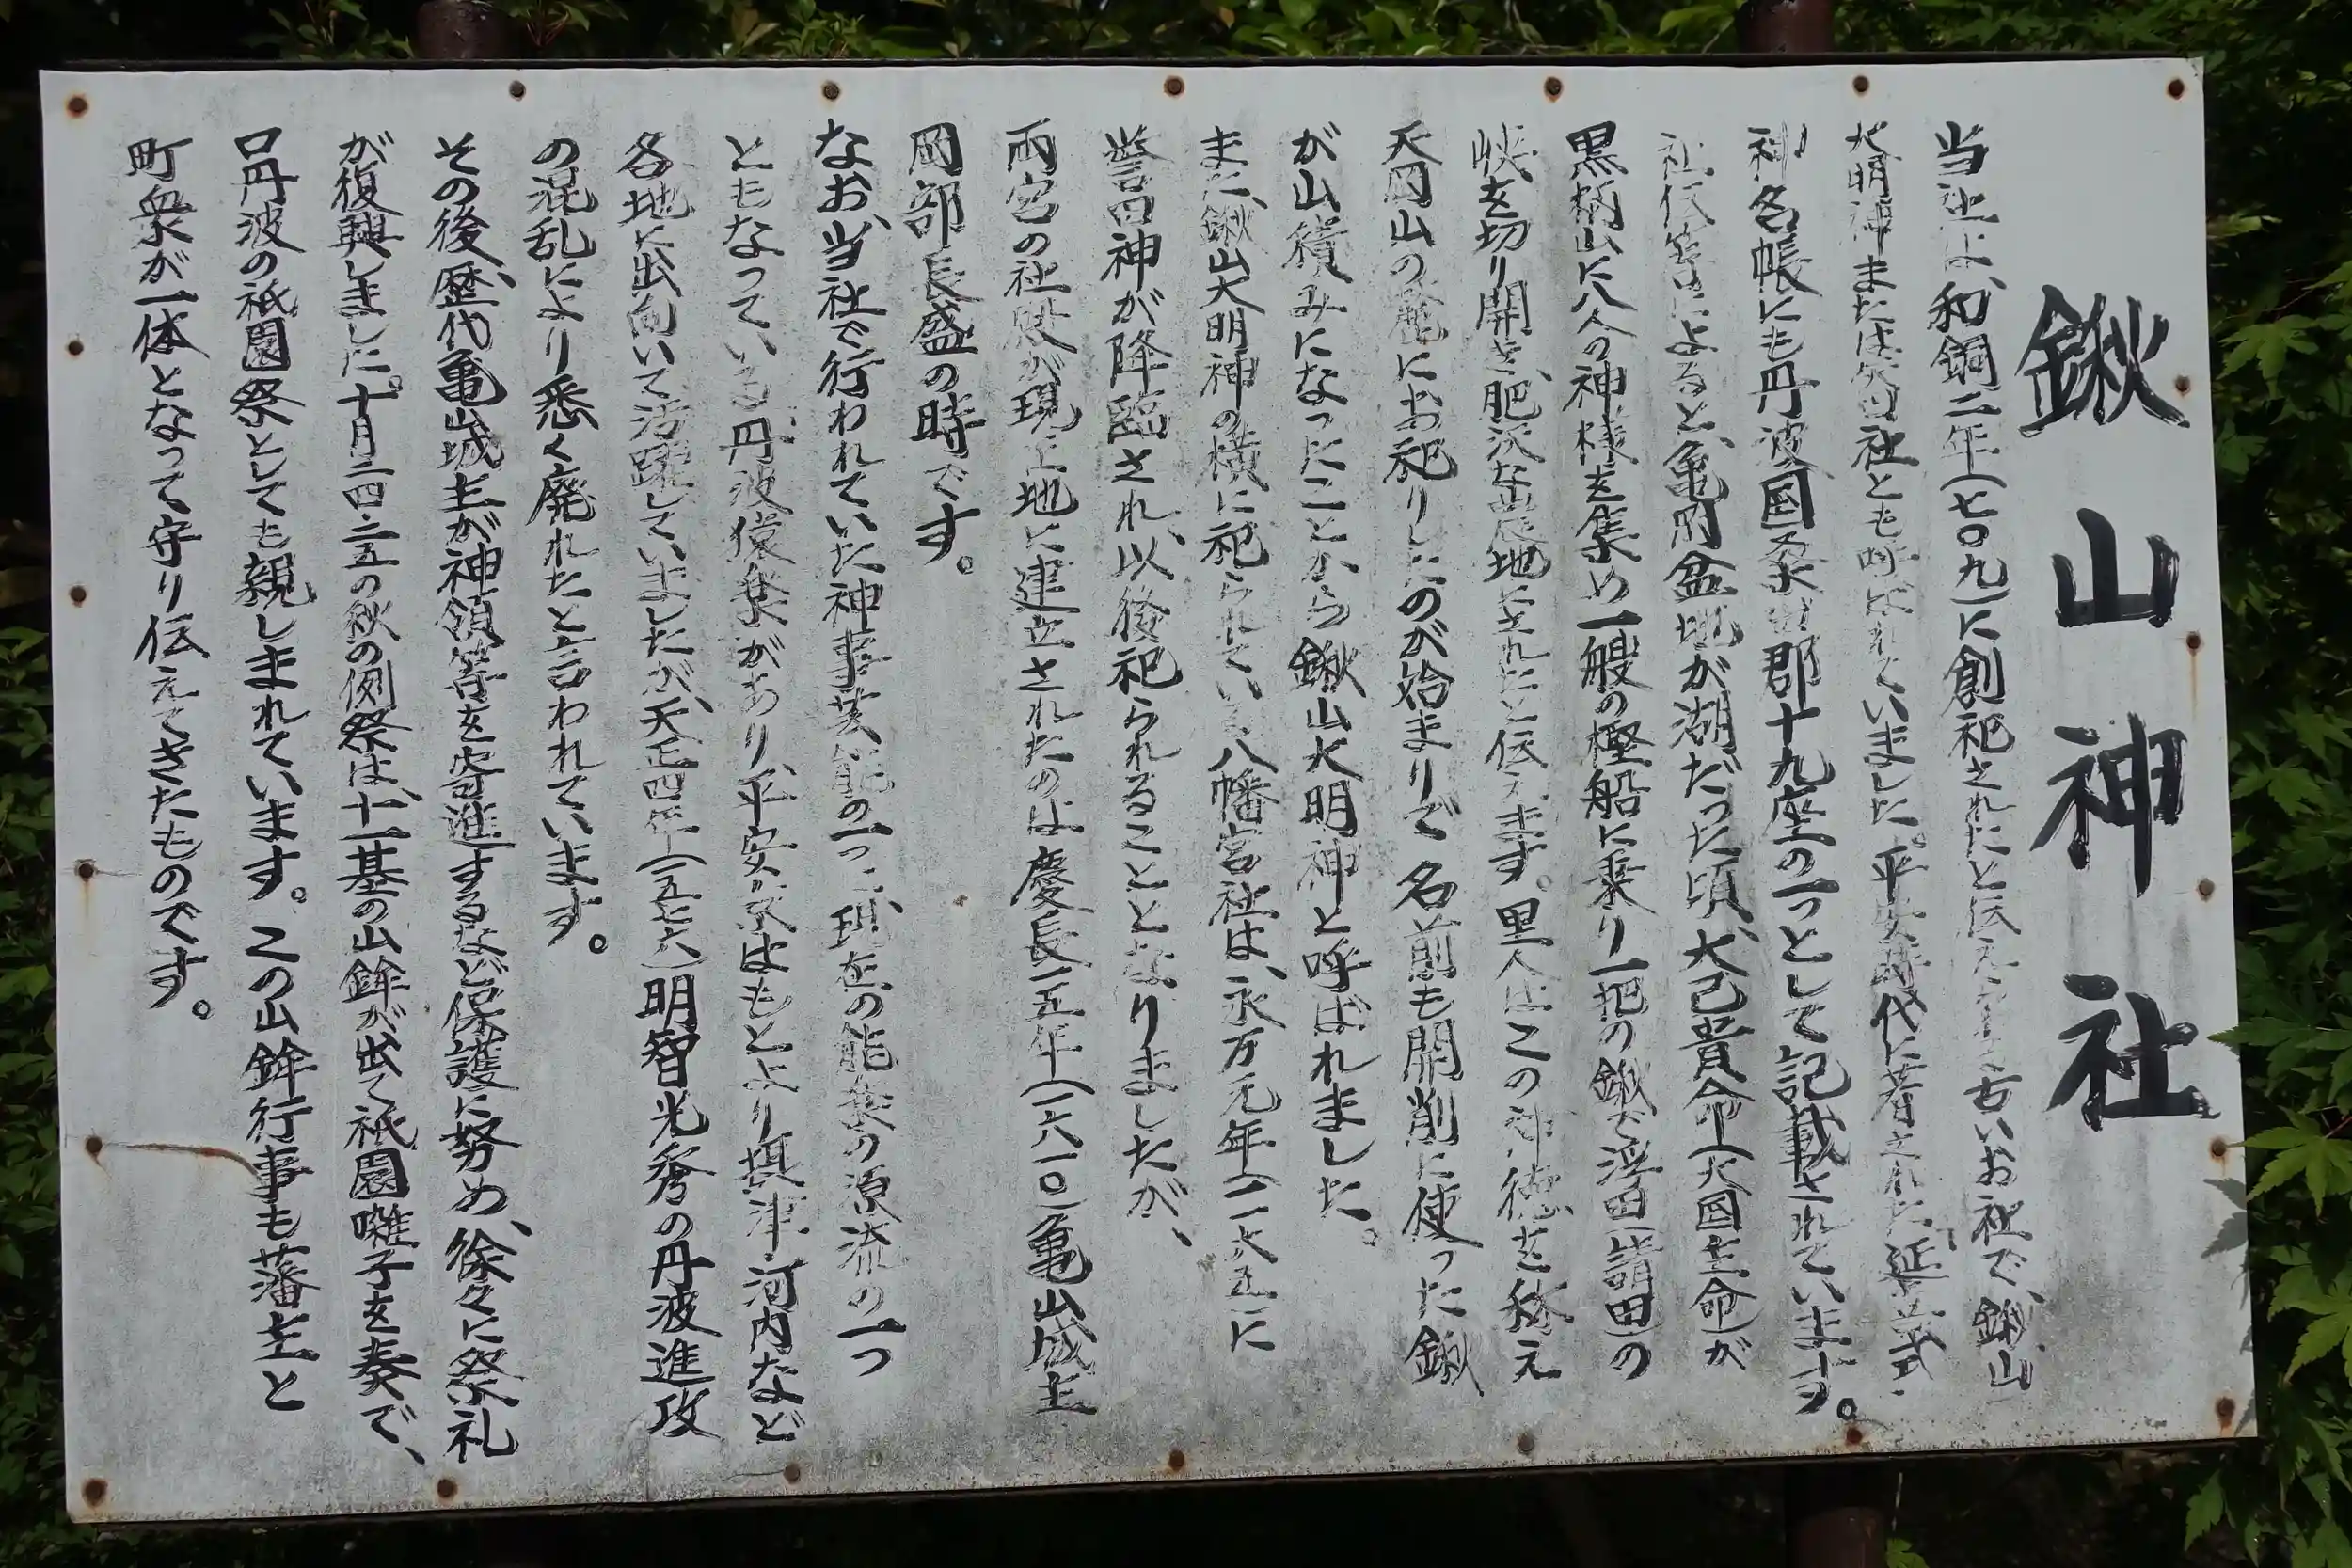 鍬山神社
当社は、和銅二年(七〇九)に創祀されたと伝えます古いお社で、鍬山
大明神または矢田社とも呼ばれていました。平安時代に著された延喜式・
神名帳にも丹波国桑田郡十九座の一つとして記載されています。
社伝等によると、亀岡盆地が湖だった頃、大己貴命(大国主命)が
黒柄山に八人の神様を集め一艘の樫船に乗り一把の鍬で浮田(請田)の
峡を切り開き、肥沃な農地にされたと伝えます。里人はこの神徳を称え
天岡山の麓にお祀りしたのが始まりで名前も開削に使った鍬
が山積みになったことから鍬山大明神と呼ばれました。
また、鍬山大明神の横に祀られている八幡宮社は、永万元年(一一六五)に
誉田神が降臨され、以後祀られることとなりましたが、
両宮の社殿が現在地に建立されたのは慶長一五年(一六一〇)亀山城主
岡部長盛の時です。
なお、当社で行われていた神事芸能の一つに、現在の能楽の源流の一つ
ともなっている丹波猿楽があり、平安末はもとより摂津・河内など
各地に出向いて活躍していましたが、天正四年(一五七六)明智光秀の丹波進攻
の混乱により悉く廃れたと言われています。
その後、歴代亀山城主が神領等を寄進するなど保護に努め、徐々に祭礼
が復興しました。十月二四・二五の秋の例祭は、十一基の山鉾が出て祇園囃子を奏で、
口丹波の祇園祭としても親しまれています。この山鉾行事も藩主と
町衆が一体となって守り伝えてきたものです。